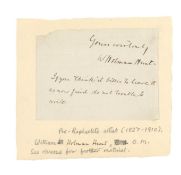 Yours evidently
W Holman Hunt.
If you think it better to leave it
no new find do not trouble to
write.
Pre-Raphaelite artist (1827-1910),
William Holman Hunt, O.M.
See reverse for further material.